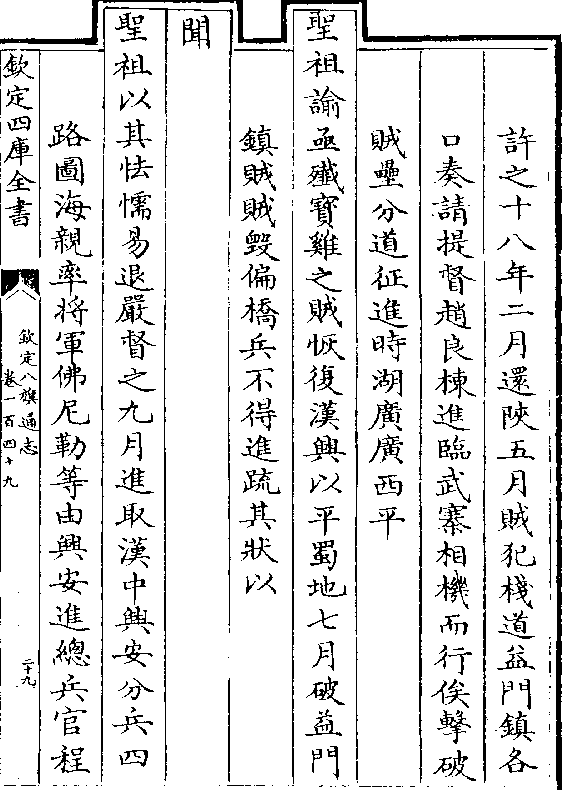 許之十八年二月還陜五月賊犯棧道益門鎮各
口奏請提督趙良棟進臨武寨相機而行俟擊破
賊壘分道征進時湖廣廣西平
聖祖諭亟殲寶雞之賊恢復漢興以平蜀地七月破益門
鎮賊賊毀偏橋兵不得進疏其狀以
聞
聖祖以其怯懦易退嚴督之九月進取漢中興安分兵四
路圖海親率將軍佛尼勒等由興安進總兵官程
欽定四庫全書
欽定八旗通志
卷一百四十九
二十九